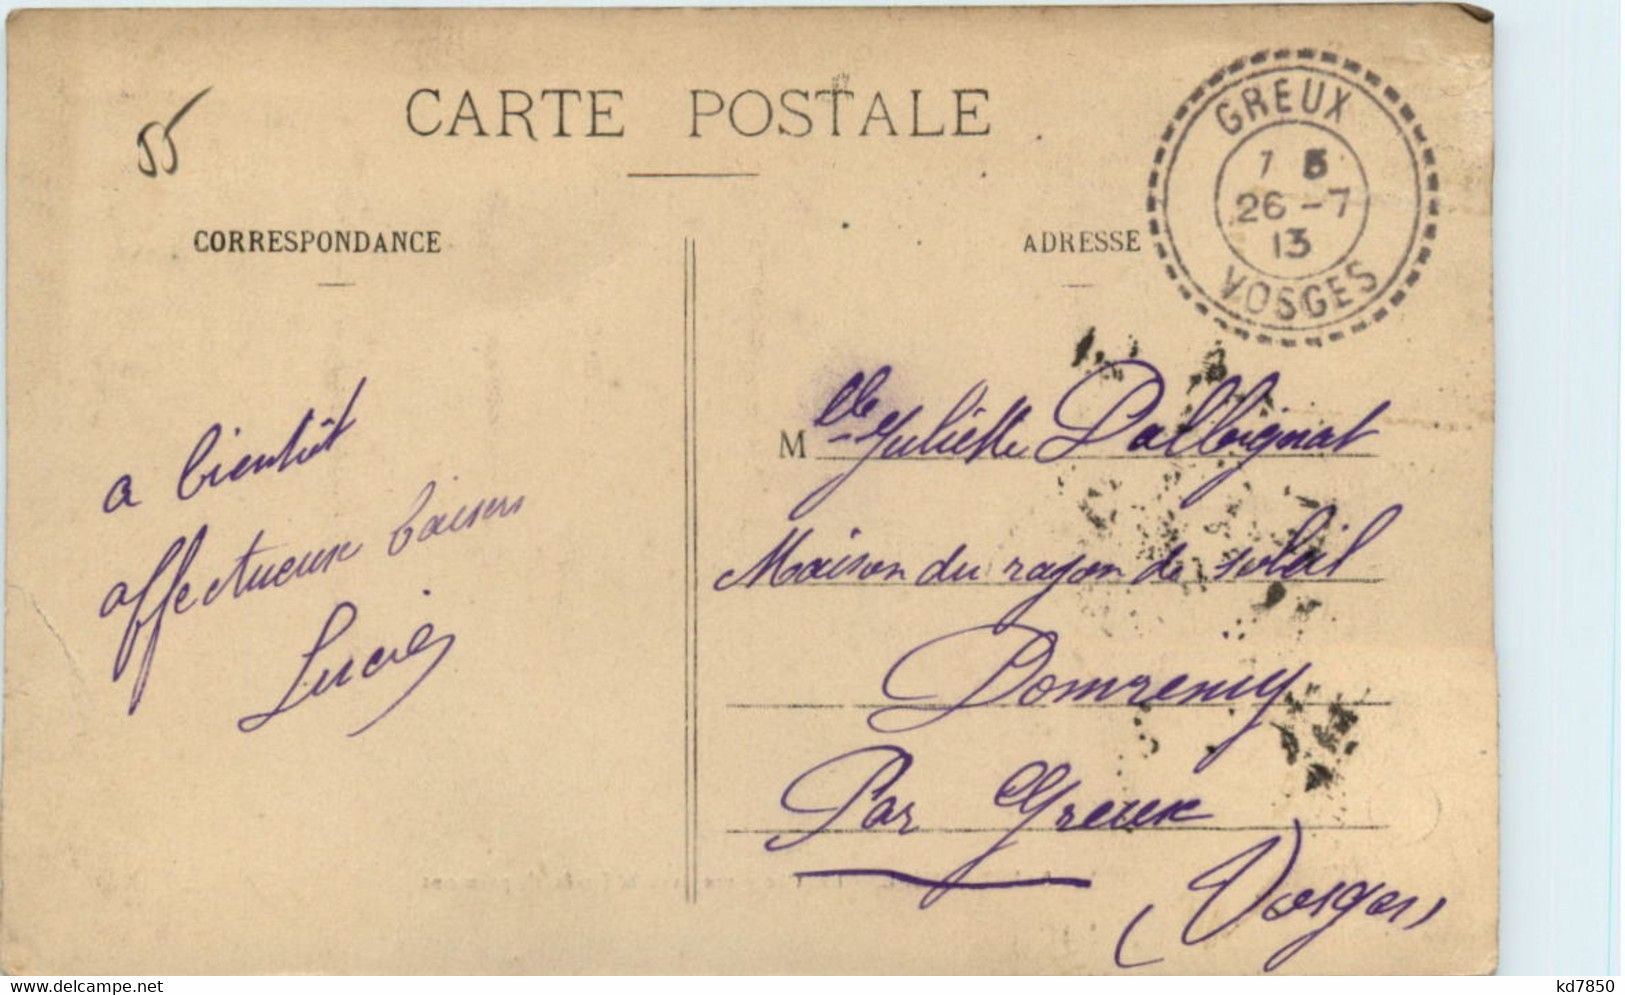 CARTE POSTALE
55
GREUX
7 5
26 - 7
13
VOSGES
CORRESPONDANCE
ADRESSE
a bientôt
affectueux baisers
Lucie
Mlle Juliette Dalbignat
Maison du rayon de soleil
Domremy
Par Greux
(Vosges)
www.delcampe.net
kd7850